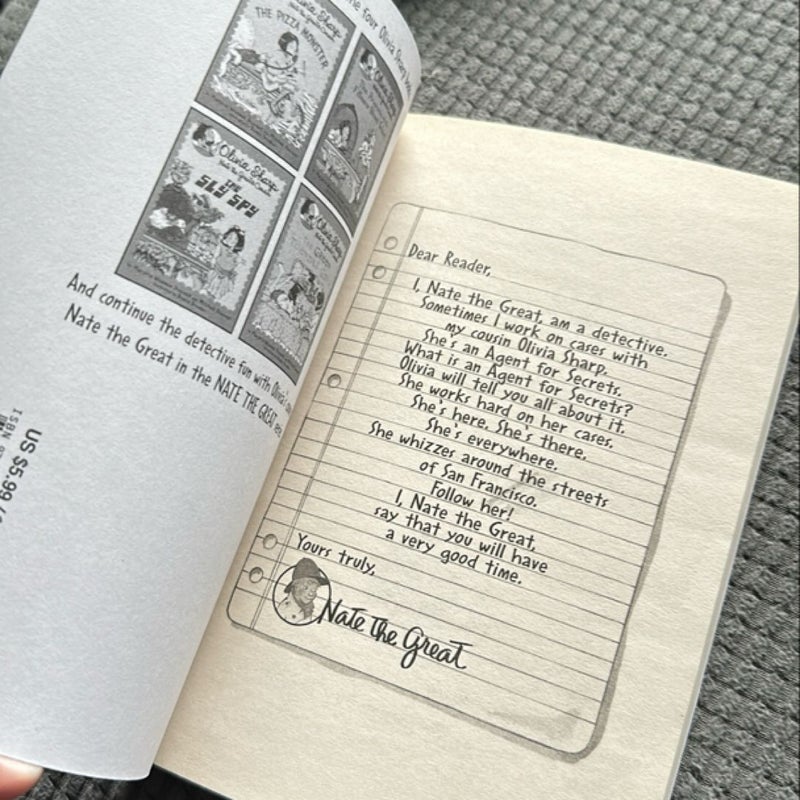 four Olivia Sharp
THE PIZZA MONSTER
Olivia Sharp
THE
SLY SPY
And continue the detective fun with Olivia's
Nate the Great in the NATE THE GREAT
ISBN
US $5.99
Dear Reader,
I, Nate the Great, am a detective.
Sometimes I work on cases with
my cousin Olivia Sharp.
She's an Agent for Secrets.
What is an Agent for Secrets?
Olivia will tell you all about it.
She works hard on her cases.
She's here. She's there.
She's everywhere.
She whizzes around the streets
of San Francisco.
Follow her!
I, Nate the Great,
say that you will have
a very good time.
Yours truly,
Nate the Great